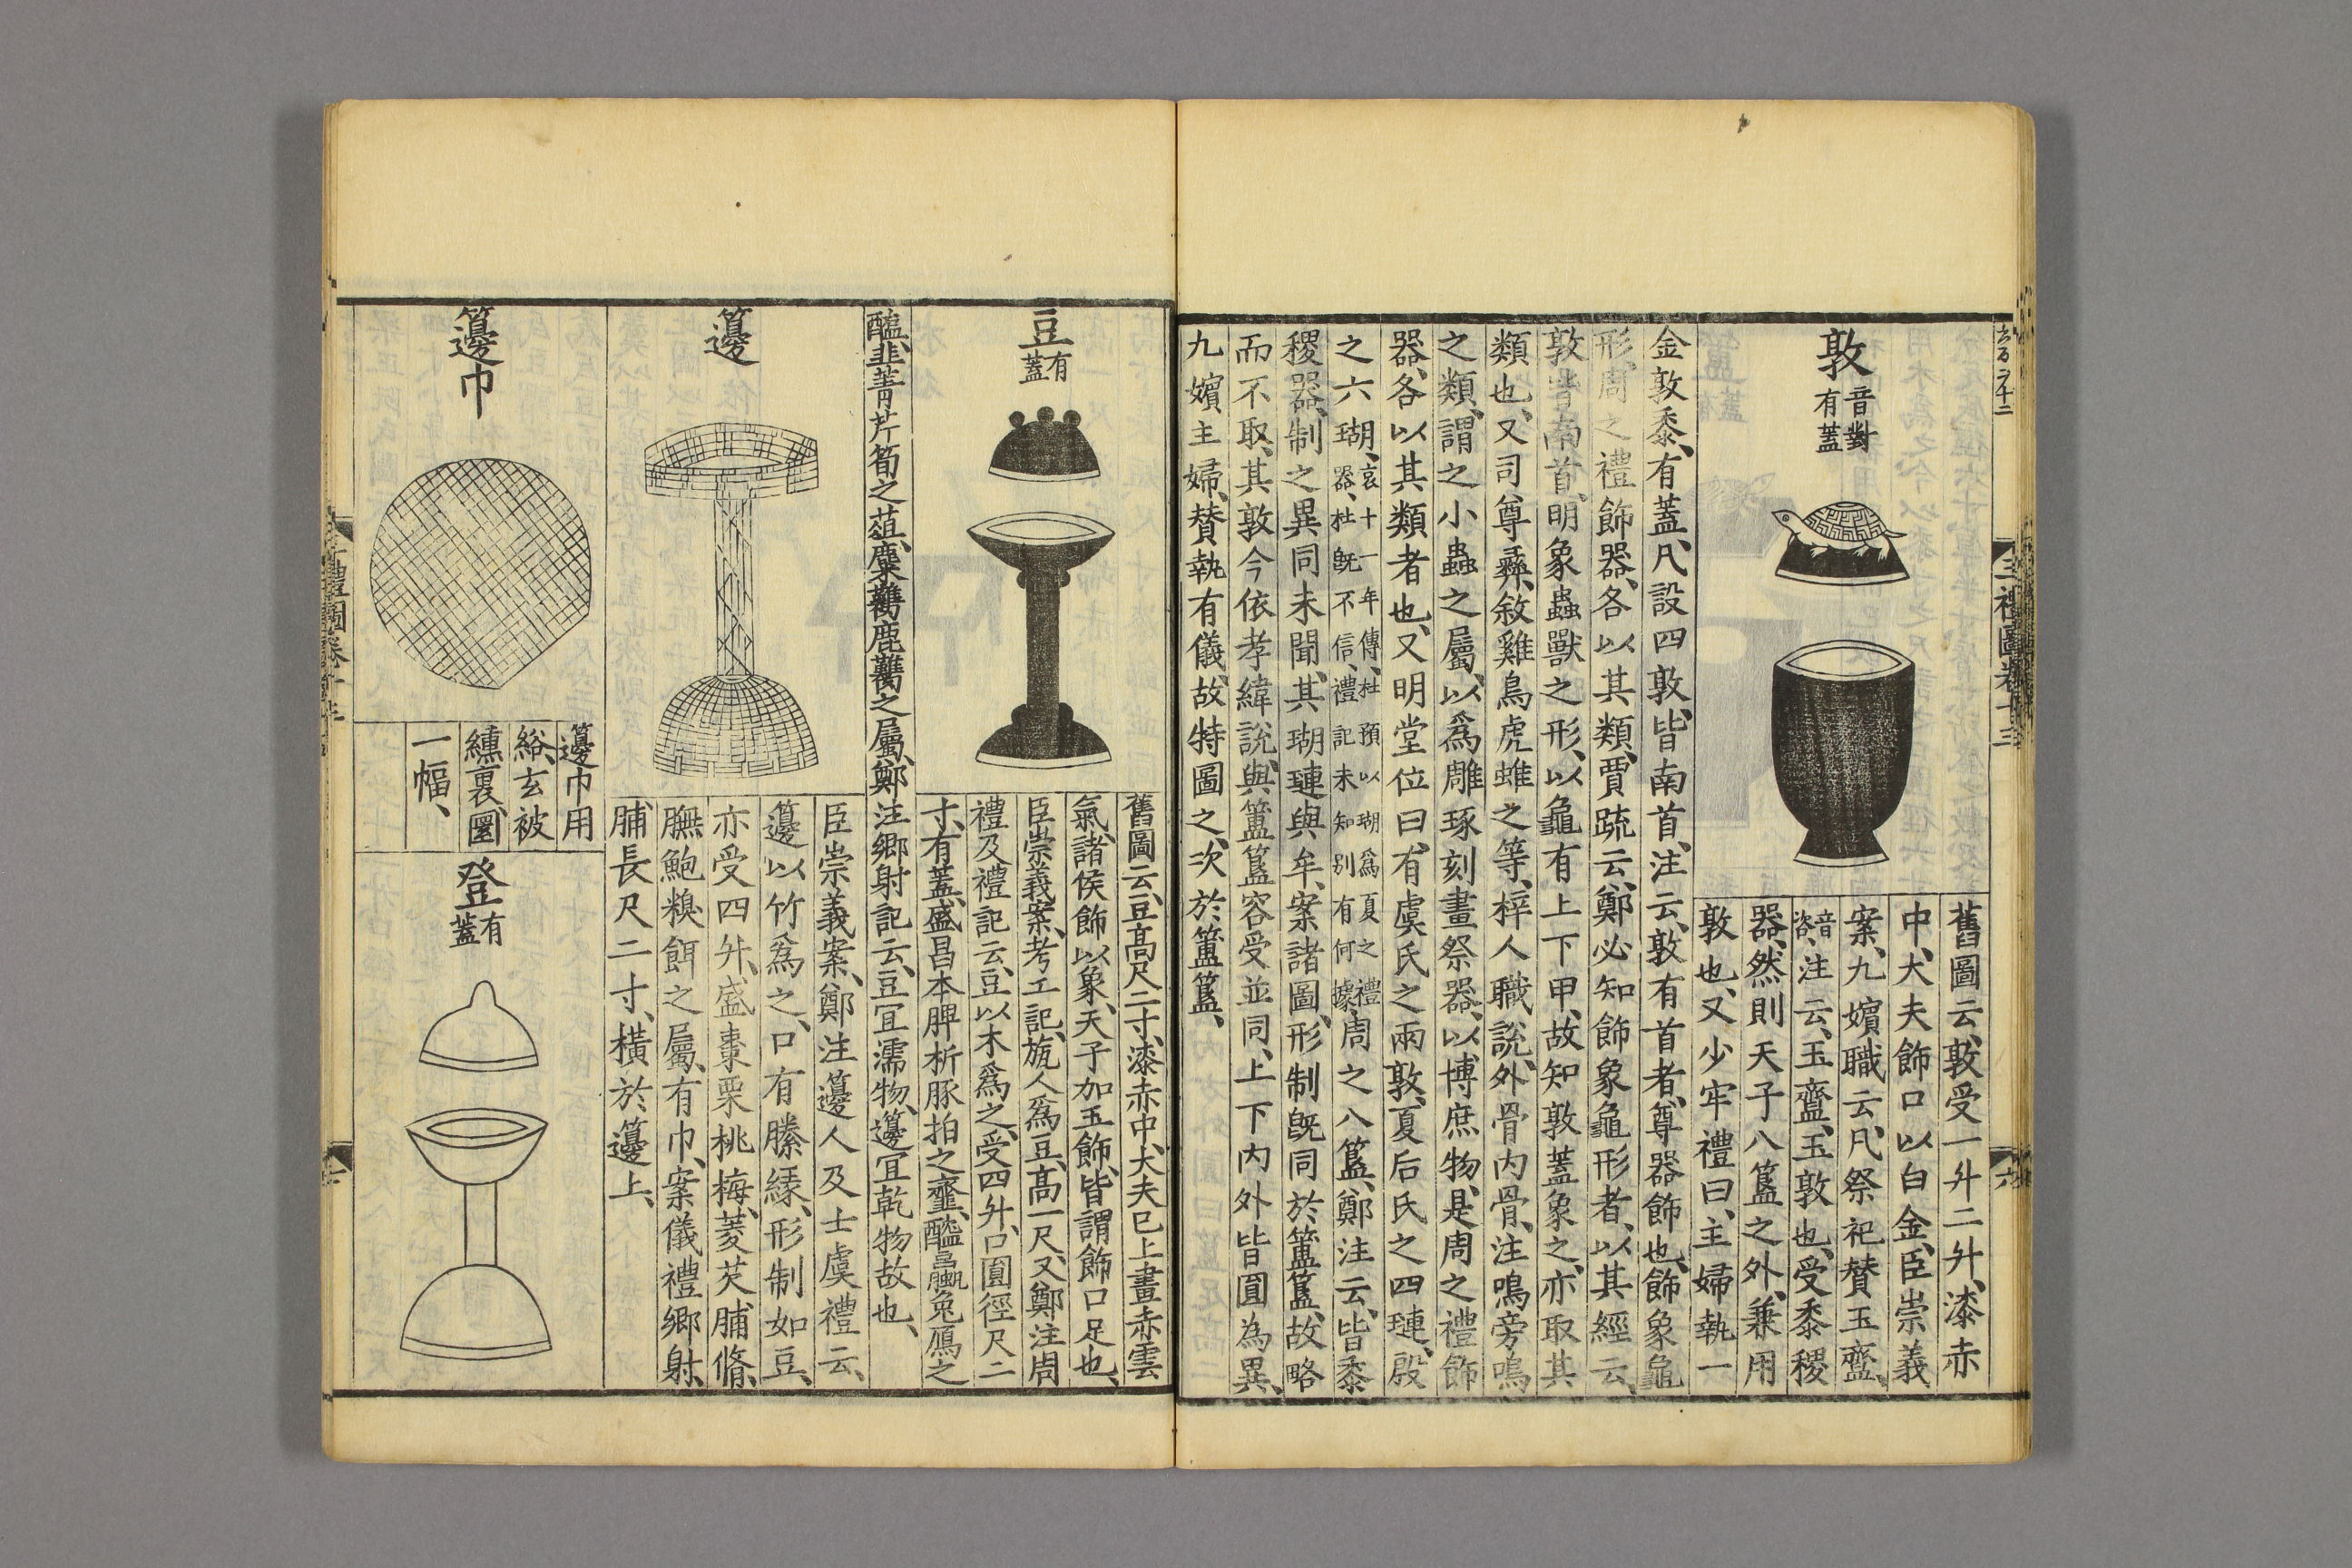 敦 音對有蓋
舊圖云、敦受一斗二升、漆赤
中、大夫飾口以白金、臣崇義
案、九嬪職云、凡祭祀、贊玉齍、
音咨、注云、玉齍、玉敦也、受黍稷
器、然則天子八簋之外、兼用
敦也、又少牢禮曰、主婦執一
金敦黍、有蓋、凡設四敦、皆南首、注云、敦有首者、尊器飾也、飾象龜
形、周之禮飾器、各以其類、賈疏云、鄭必知飾象龜形者、以其經云、
敦皆南首、明象蟲獸之形、以龜有上下甲、故知敦蓋象之、亦取其
類也、又司尊彝、敘雞鳥虎蜼之等、梓人職說、外骨内骨、注鳴旁鳴
之類、謂之小蟲之屬、以爲雕琢刻畫祭器、以博庶物、是周之禮飾
器、各以其類者也、又明堂位曰、有虞氏之兩敦、夏后氏之四璉、殷
之六瑚、哀十一年傳、杜預以瑚爲夏之禮器、杜旣不信、禮記未知別有何據、周之八簋、鄭注云、皆黍
稷器、制之異同未聞、其瑚璉與牟、案諸圖、形制旣同於簠簋、故略
而不取、其敦今依孝緯說、與簠簋容受並同、上下内外皆圓為異、
九嬪主婦、贊執有儀、故特圖之、次於簠簋、
三禮圖卷十三
六
豆 有蓋
舊圖云、豆高尺二寸、漆赤中、大夫已上畫赤雲
氣、諸侯飾以象、天子加玉飾、皆謂飾口足也、
臣崇義案、考工記、瓬人爲豆、高一尺、又鄭注周
禮及禮記云、豆以木爲之、受四升、口圓徑尺二
寸、有蓋、盛昌本脾析豚拍之齏、醯蠃兔鴈之
醢、韭菁芹筍之菹、麋臡鹿臡之屬、鄭注鄉射記云、豆宜濡物、籩宜乾物故也、
籩
臣崇義案、鄭注籩人及士虞禮云、
籩以竹爲之、口有縢緣、形制如豆、
亦受四升、盛棗栗桃梅、菱芡脯脩、
膴鮑糗餌之屬、有巾、案儀禮鄉射、
脯長尺二寸、橫於籩上、
籩巾
籩巾用
綌、玄被
纁裏、圜
一幅、
登 有蓋